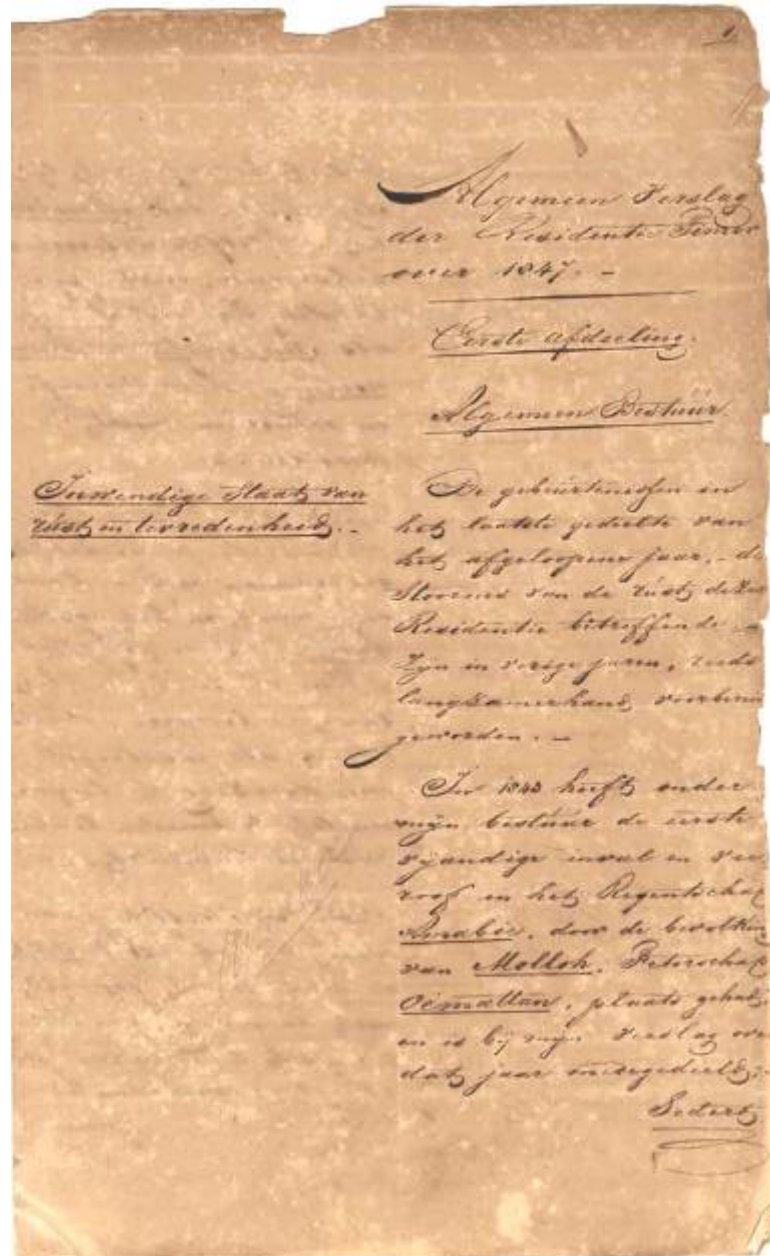 1
Algemeen Verslag
der Residentie Timor
over 1847. –
Eerste afdeeling.
Algemeen Bestuur.
Inwendige Staat van
rust en tevredenheid. –
De gebeurtenissen in
het laatste gedeelte van
het afgeloopene jaar, – de
Stoornis van de rust dezer
Residentie betreffende –
zijn in vorige jaren, reeds
langzamerhand, voorberei
geworden. –
In 1843 heeft onder
mijn bestuur de eerste
vijandige inval en vee
roof in het Regentschap
Amabie, door de bevolking
van Molloh, Fetorschap
Oemattan, plaats gehad,
en is bij mijn verslag over
dat jaar medegedeeld; –
Sedert